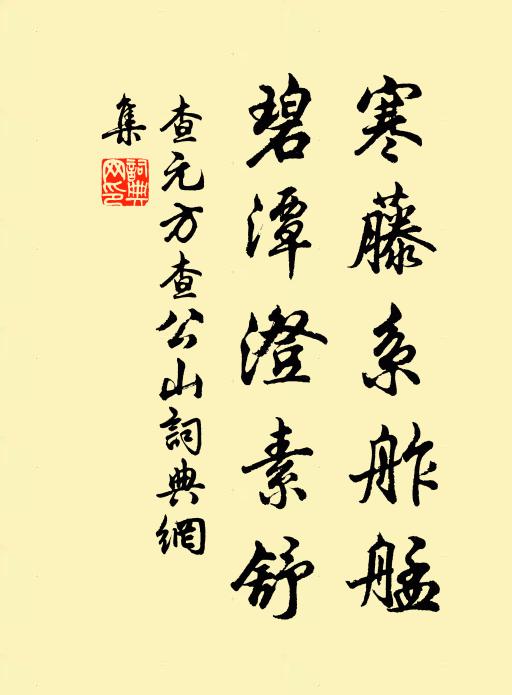 寒藤系舴艋
碧潭澄素舒
查元方查公山詞典網
集
詞典
网印